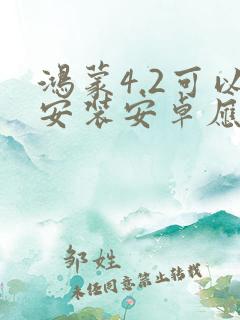 鸿蒙4.2可以
安装安卓应
邹姓
未经同意禁止转载